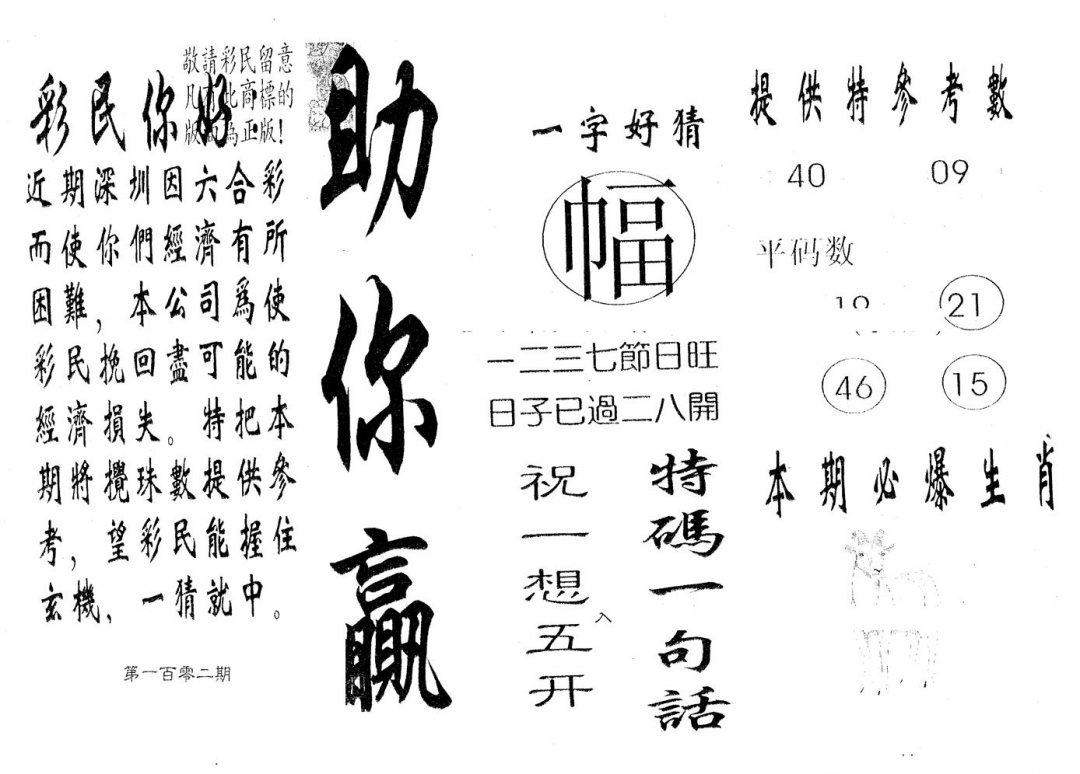 敬請彩民留意
凡 此商標的
版 為正版!
彩民你好
近期深圳因六合彩
而使你們經濟有所
困難，本公司爲使
彩民挽回盡可能的
經濟損失。特把本
期將攪珠數提供參
考，望彩民能握住
玄機，一猜就中。
第一百零二期
助你贏
一字好猜
幅
一二三七節日旺
日子已過二八開
特碼一句話
祝一想五开
入
提供特參考數
40 09
平码数
19 21
46 15
本期必爆生肖